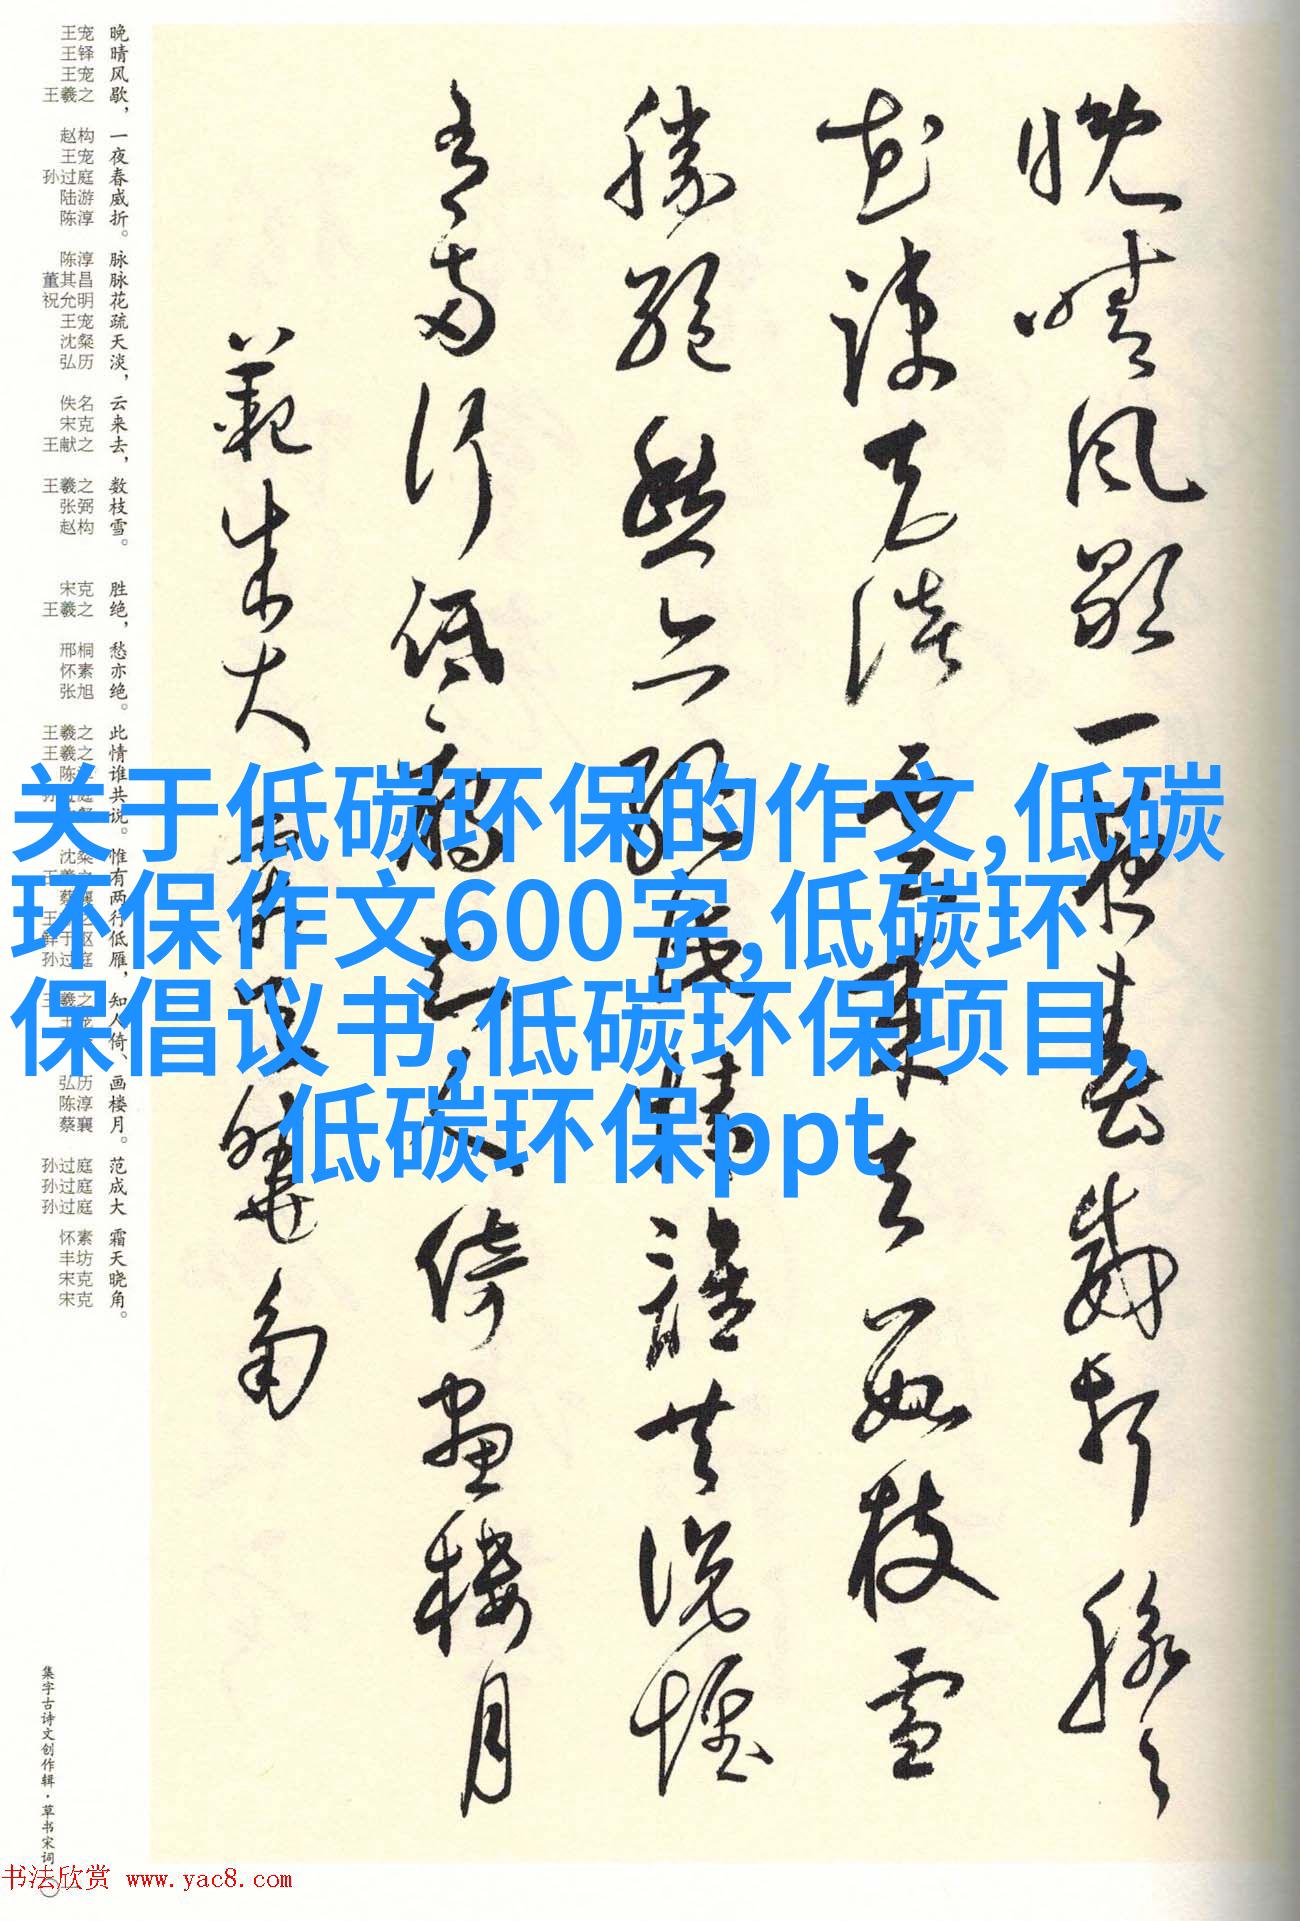 晚晴風歇一夜春威折脉々
花疎天淡雲來去數枝雪
勝絕愁亦絕此情誰共說惟
有兩行低雁知人倚畫樓月
范成大霜天曉角
关于低碳环保的作文,低碳
环保作文600字,低碳环
保倡议书,低碳环保项目,
低碳环保ppt
晚晴风歇，一夜春威折。脉脉花疏天淡，云来去，数枝雪。 胜绝，愁亦绝。此情谁共说。惟有两行低雁，知人倚、画楼月。 范成大 霜天晓角。
王宠 王铎 王宠 王羲之 赵构 王宠 孙过庭 陆游 陈淳 陈淳 董其昌 祝允明 王宠 沈粲 弘历 佚名 宋克 王献之 王羲之 张弼 赵构 宋克 王羲之 邢桐 怀素 张旭 王羲之 王羲之 弘历 陈淳 蔡襄 孙过庭 孙过庭 孙过庭 怀素 丰坊 宋克 宋克
集字古诗文创作辑·草书宋词
书法欣赏 www.yac8.com